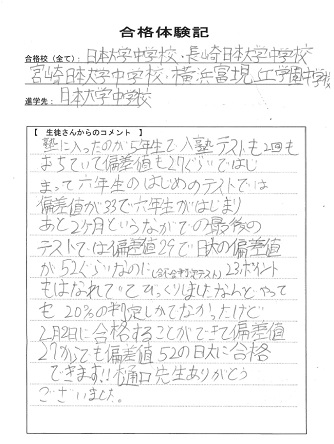 合格体験記
合格校(全て): 日本大学中学校・長崎日本大学中学校
宮崎日本大学中学校・横浜富士見丘学園中学校
進学先: 日本大学中学校
【 生徒さんからのコメント 】
塾に入ったのが5年生で入塾テストも2回も
まちていて偏差値も27ぐらいではじ
まって六年生のはじめのテストでは
偏差値が33で六年生がはじまり
あと2ヶ月というなかでの最後の
テストでは偏差値29で日大の偏差値
が52ぐらいなのに(合不合判定テスト)23ポイント
もはなれていてびっくりしましたなんどやって
も20%の判定しかでてなかったけど
2月2日に合格することができて偏差値
27からでも偏差値52の日大に合格
できます!!樋口先生ありがとう
ございました。